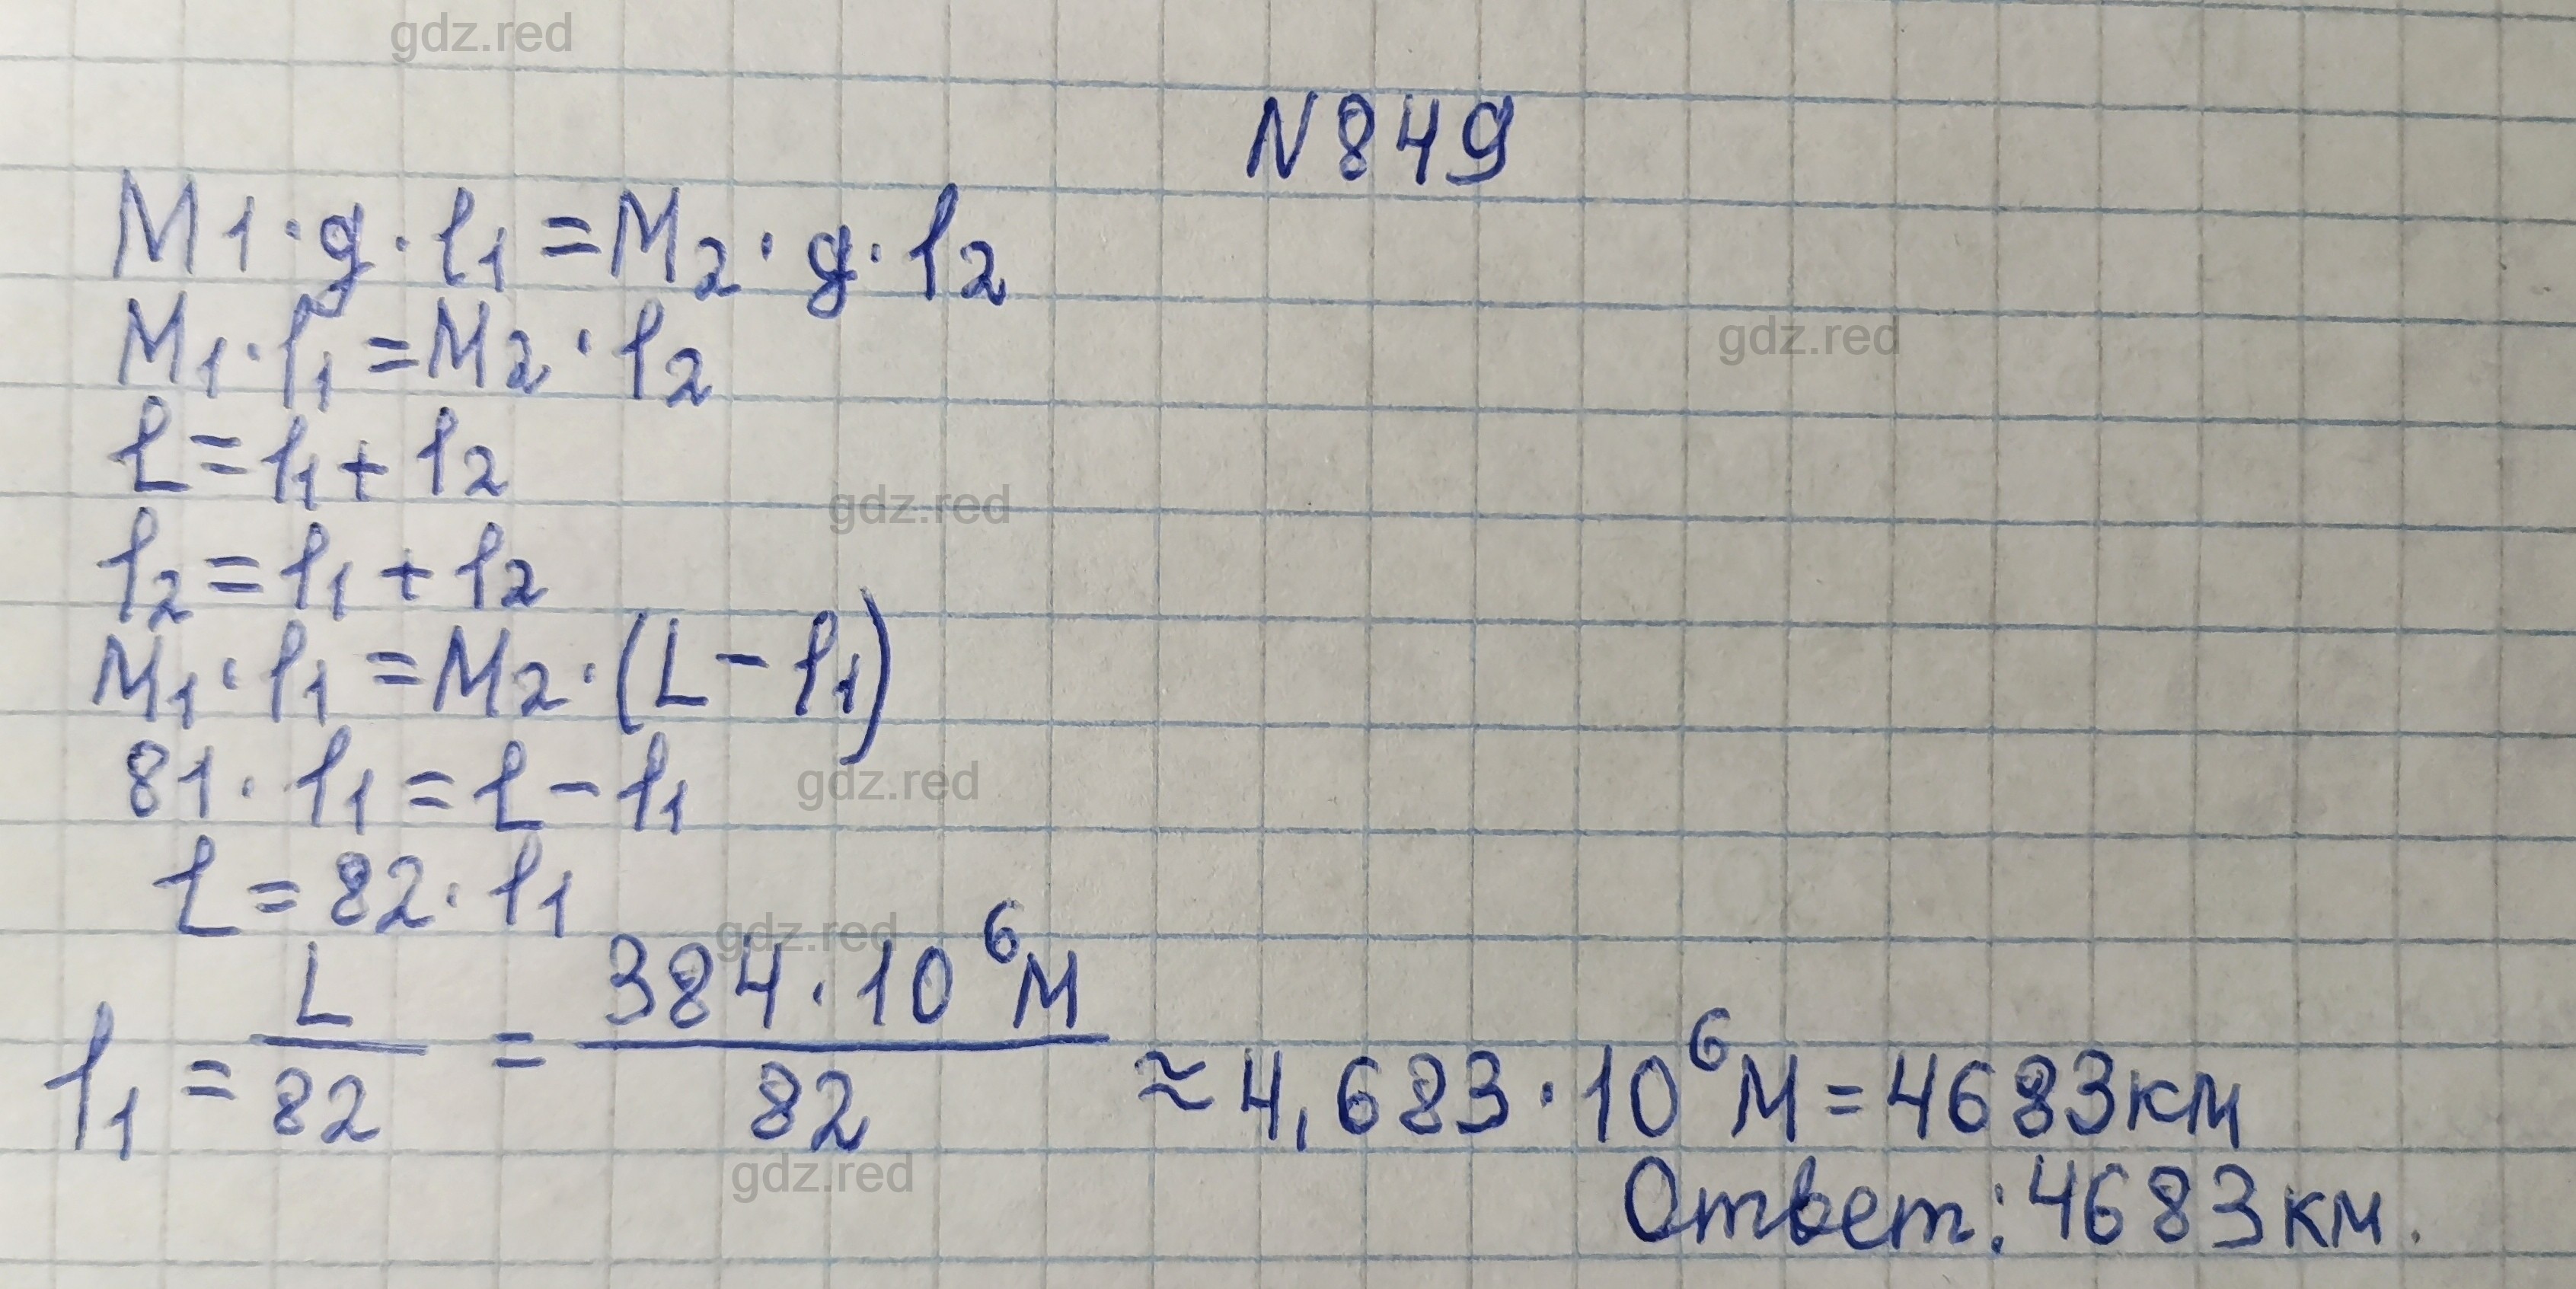 gdz.red
N849
M1·g·l1=M2·g·l2
M1·l1=M2·l2
gdz.red
L=l1+l2
gdz.red
l2=l1+l2
M1·l1=M2·(L-l1)
81·l1=L-l1
gdz.red
L=82·l1
gdz.red
l1=L/82=384·10⁶м/82≈4,683·10⁶м=4683км
gdz.red
Ответ: 4683км.